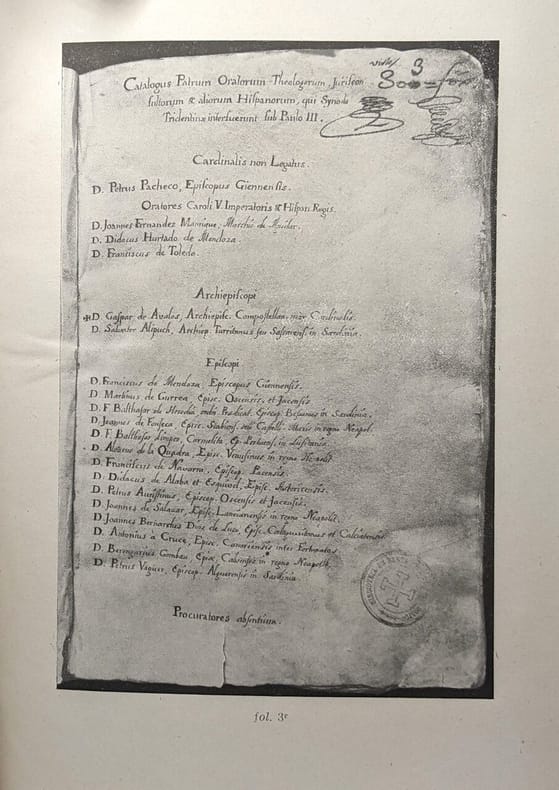 3
Catalogus Patrum Oratorum Theologorum Juriscon
sultorum & aliorum Hispanorum, qui Synodo
Tridentinæ interfuerunt sub Paulo III.
Cardinalis non Legatus.
D. Petrus Pacheco, Episcopus Giennensis.
Oratores Caroli V. Imperatoris & Hispan. Regis.
D. Joannes Fernandez Manrique, Marchio de
D. Didacus Hurtado de Mendoza.
D. Franciscus de Toledo.
Archiepiscopi
D. Gaspar de Avalos, Archiepisc. Compostellan. Cardinalis.
D. Salvator Alipuch, Archiep. Turritanus seu Sassarens. in Sardinia.
Episcopi
D. Franciscus de Mendoza, Episcopus Giennensis.
D. Martinus de Gurrea, Episc. Oscensis, et Jacensis.
D. F. Balthasar de Heredia, Prædicat. Episcop. Bosanus in Sardinia.
D. Joannes de Fonseca, Episc. in regno Neapol.
D. F. Balthasar Limpo, Carmelita, Ep. Portuens. in Lusitania.
D. Alvarus de la Quadra, Episc. Venusinus in regno Neapolit.
D. Franciscus de Navarra, Episcop. Pacensis.
D. Didacus de Alaba et Esquivel, Episc. Astoricensis.
D. Petrus Augustinus, Episcop. Oscensis et Jacensis.
D. Joannes de Salazar, Episc. Lancianensis in regno Neapolit.
D. Joannes Bernardus Diaz de Luco, Episc. et
D. Antonius a Cruce, Episc. Canariensis inter Fortunatas.
D. Berengarius Gombau, Episc. Calvensis in regno Neapolit.
D. Petrus Vaguer, Episcop. Alguerensis in Sardinia.
Procuratores absentium.
fol. 3ʳ